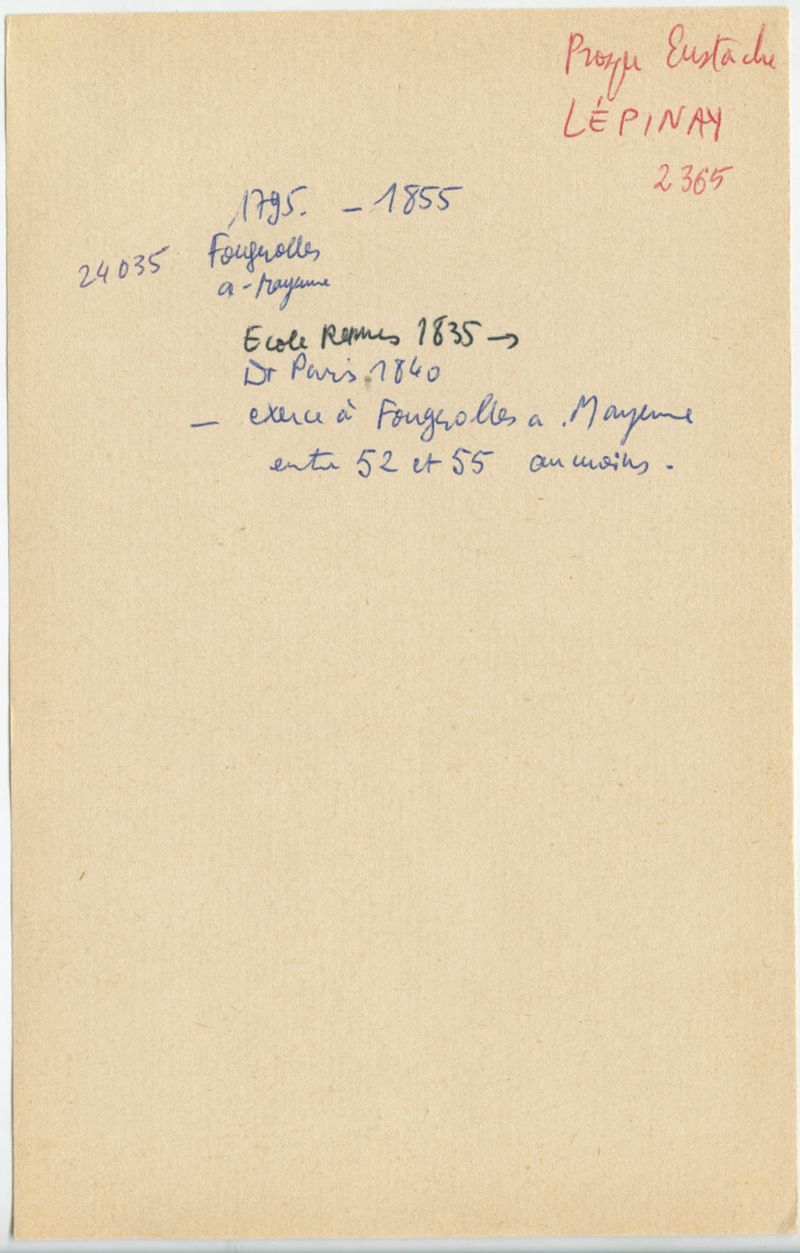 Prosper Eustache
LÉPINAY
2365
1795. – 1855
24035 Fougerolles
a - Mayenne
Ecole Rennes 1835 →
Dr Paris 1840
– exerce à Fougerolles a. Mayenne
entre 52 et 55 au moins.